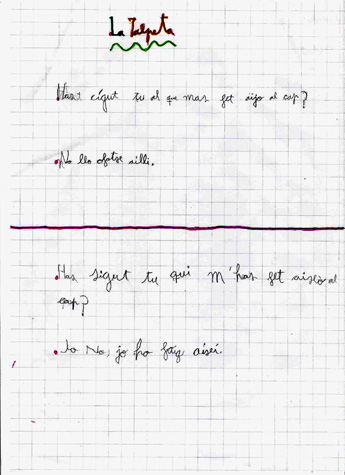 La Talpeta
Has cigut tu al que mas fet aijo al cap?
No llo ofatse ailli.
Has sigut tu qui m'has fet aisco al
cap?
Jo No, jo ho faig aisei.